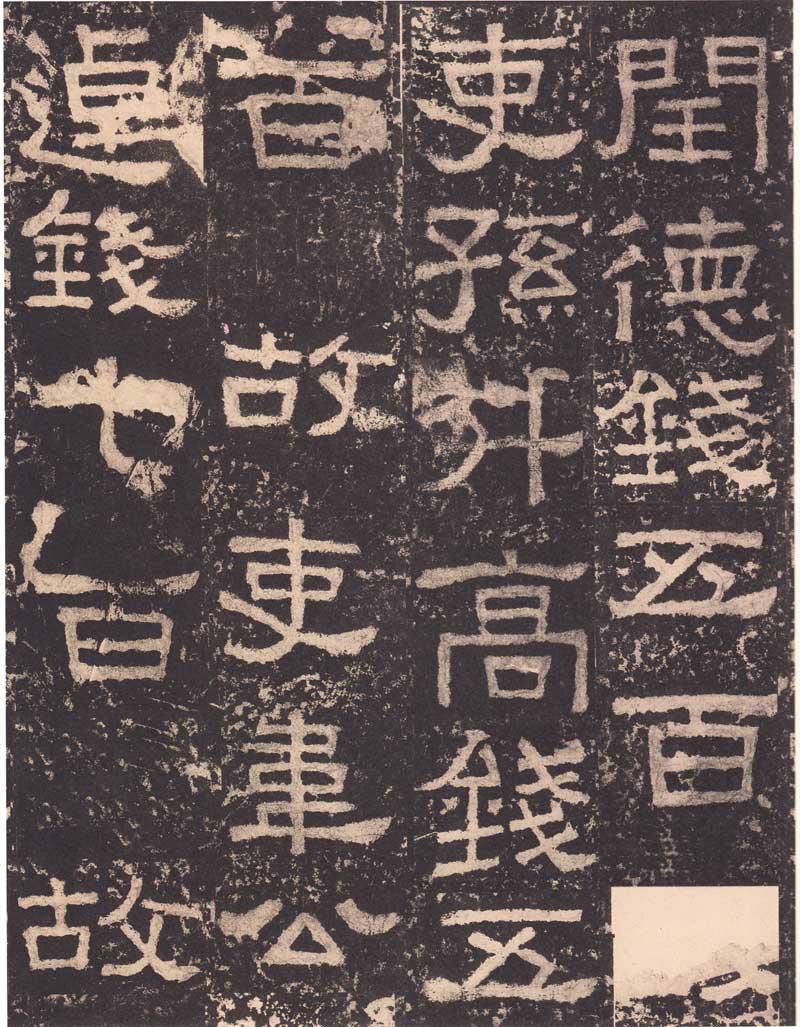 閏德錢五百
吏孫升高錢五
百 故吏韋公
逴錢七百 故